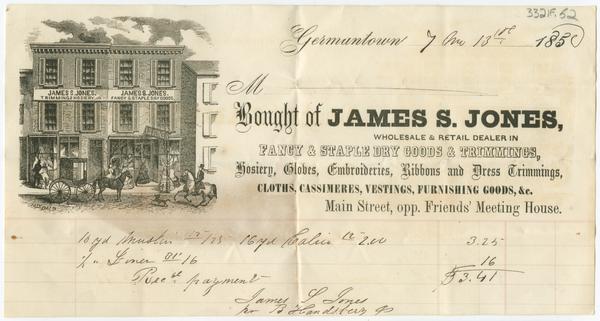 3321F.52
Germantown 7 mo 13th 1850
JAMES S. JONES, JAMES S. JONES,
TRIMMINGS, HOSIERY, &c. FANCY & STAPLE DRY GOODS.
M
Bought of JAMES S. JONES,
WHOLESALE & RETAIL DEALER IN
FANCY & STAPLE DRY GOODS & TRIMMINGS,
Hosiery, Gloves, Embroderies, Ribbons and Dress Trimmings,
CLOTHS, CASSIMERES, VESTINGS, FURNISHING GOODS, &c.
Main Street, opp. Friends' Meeting House.
10 yd Muslin 1.25 16 yd Calico 2.00 3.25
16 16
$3.41
Recd payment
James S Jones